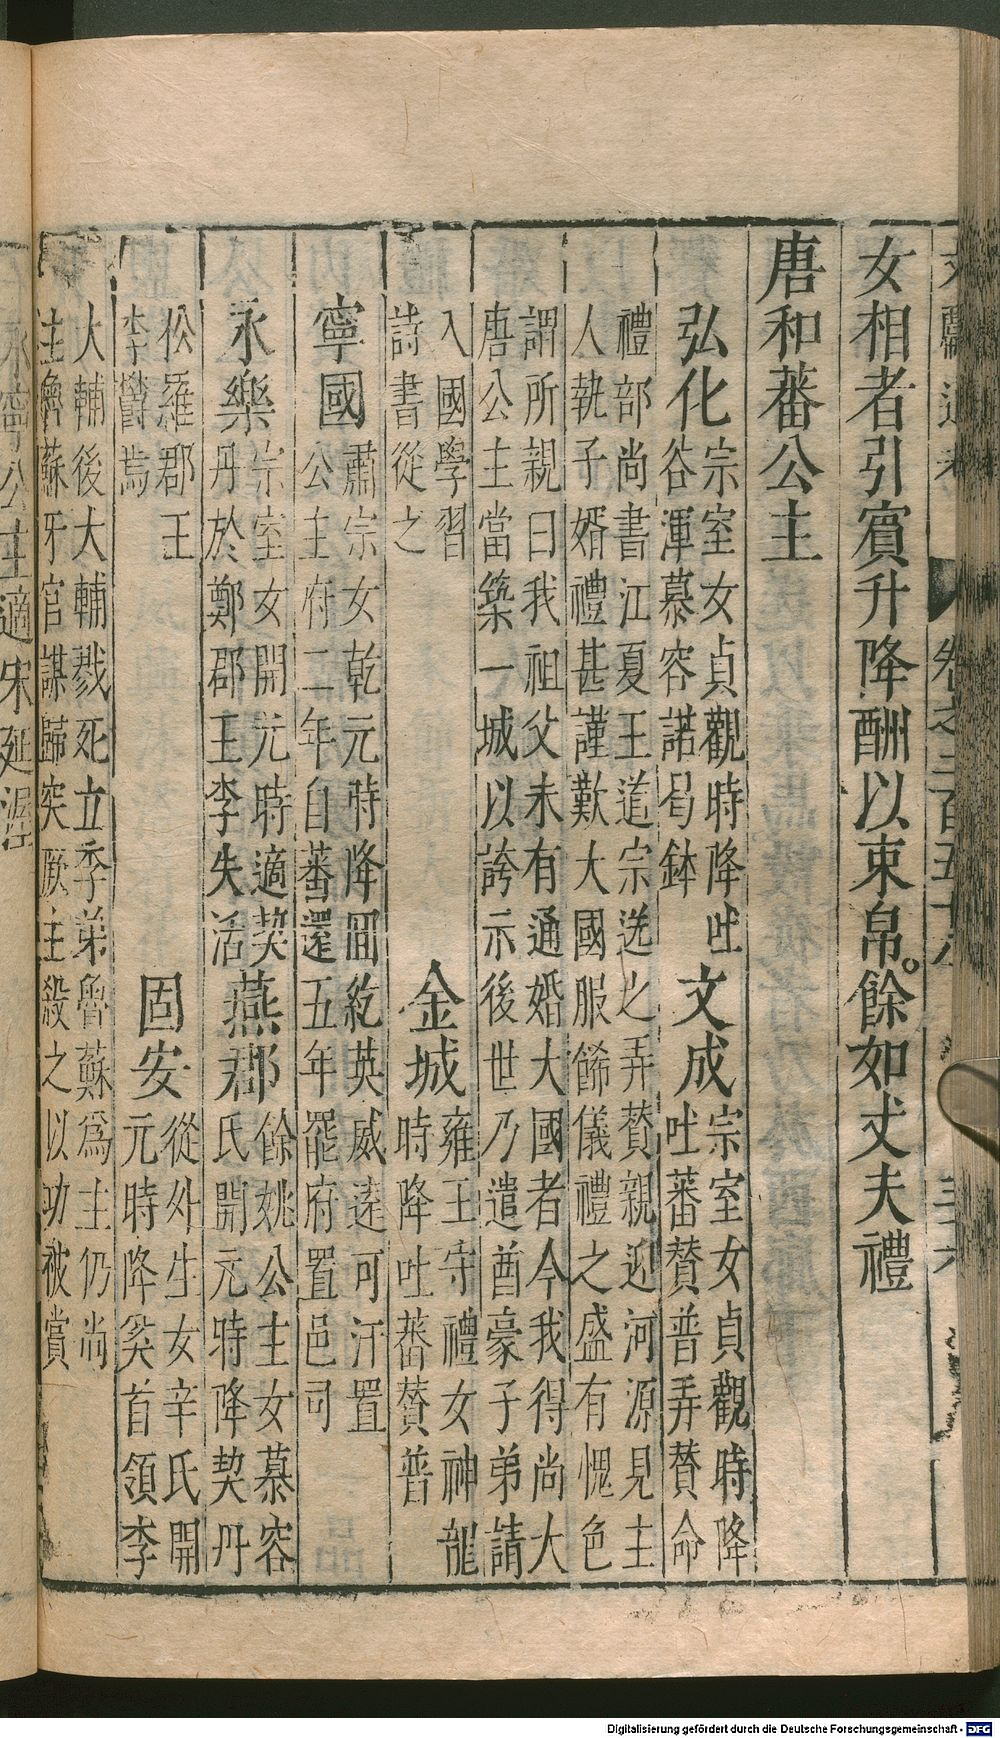 文獻通考 卷之三百五十八 三六
女相者引賓升降酬以束帛。餘如丈夫禮
唐和蕃公主
弘化
宗室女貞觀時降吐
谷渾慕容諾曷鉢
文成
宗室女貞觀時降
吐蕃賛普弄賛命
禮部尚書江夏王道宗送之弄賛親迎河源見主
人執子婿禮甚謹歎大國服飾儀禮之盛有愧色
謂所親曰我祖父未有通婚大國者今我得尚大
唐公主當築一城以誇示後世乃遣酋豪子弟請
入國學習
詩書從之
金城
雍王守禮女神龍
時降吐蕃賛普
寧國
肅宗女乾元時降囬紇英威逺可汗置
公主府二年自蕃還五年罷府置邑司
永樂
宗室女開元時適契
丹於鄭郡王李失活
燕郡
餘姚公主女慕容
氏開元時降契丹
松羅郡王
李鬱焉
固安
從外生女辛氏開
元時降奚首領李
大輔後大輔戮死立季弟魯蘇爲主仍尚
主魯蘇牙官謀歸突厥主殺之以功被賞
永寧公主適宋延渥
Digitalisierung gefördert durch die Deutsche Forschungsgemeinschaft - DFG